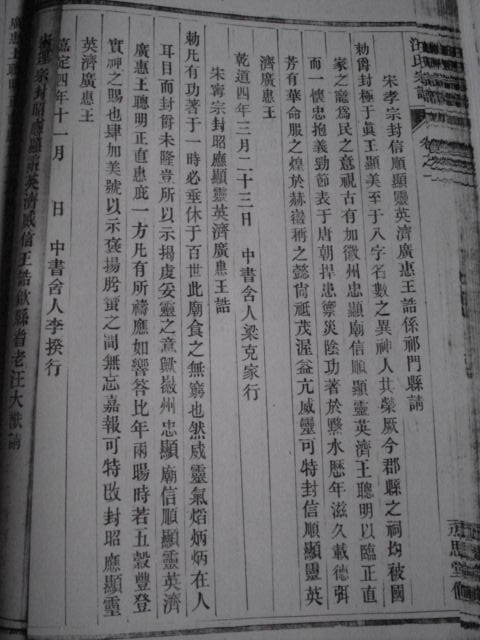 汪氏宗譜 卷之
宋孝宗封信順顯靈英濟廣惠王誥係祁門縣請
勅爵封極于眞王顯美至于八字名數之異神人共榮厥今郡縣之祠均被國
家之寵爲民之意視古有加徽州忠顯廟信順顯靈英濟王聰明以臨正直
而一懷忠抱義勁節表于唐朝捍患禦災陰功著於黟水歷年滋久載德彌
芳有華命服之煌於赫徽稱之懿尙祗茂渥益亢威靈可特封信順顯靈英
濟廣惠王
乾道四年三月二十三日 中書舍人梁克家行
宋寧宗封昭應顯靈英濟廣惠王誥
勅凡有功著于一時必垂休于百世此廟食之無窮也然威靈氣熖炳炳在人
耳目而封爵未隆豈所以示揭虔妥靈之意歟徽州忠顯廟信順顯靈英濟
廣惠王聰明正直惠庇一方凡有所禱應如響答比年雨暘時若五穀豐登
實神之賜也肆加美號以示褒揚肸蠁之間無忘嘉報可特改封昭應顯靈
英濟廣惠王
嘉定四年十一月 日 中書舍人李揆行
宋理宗封昭應顯靈英濟威信王誥歙縣耆老汪大猷請
廣惠王聰明